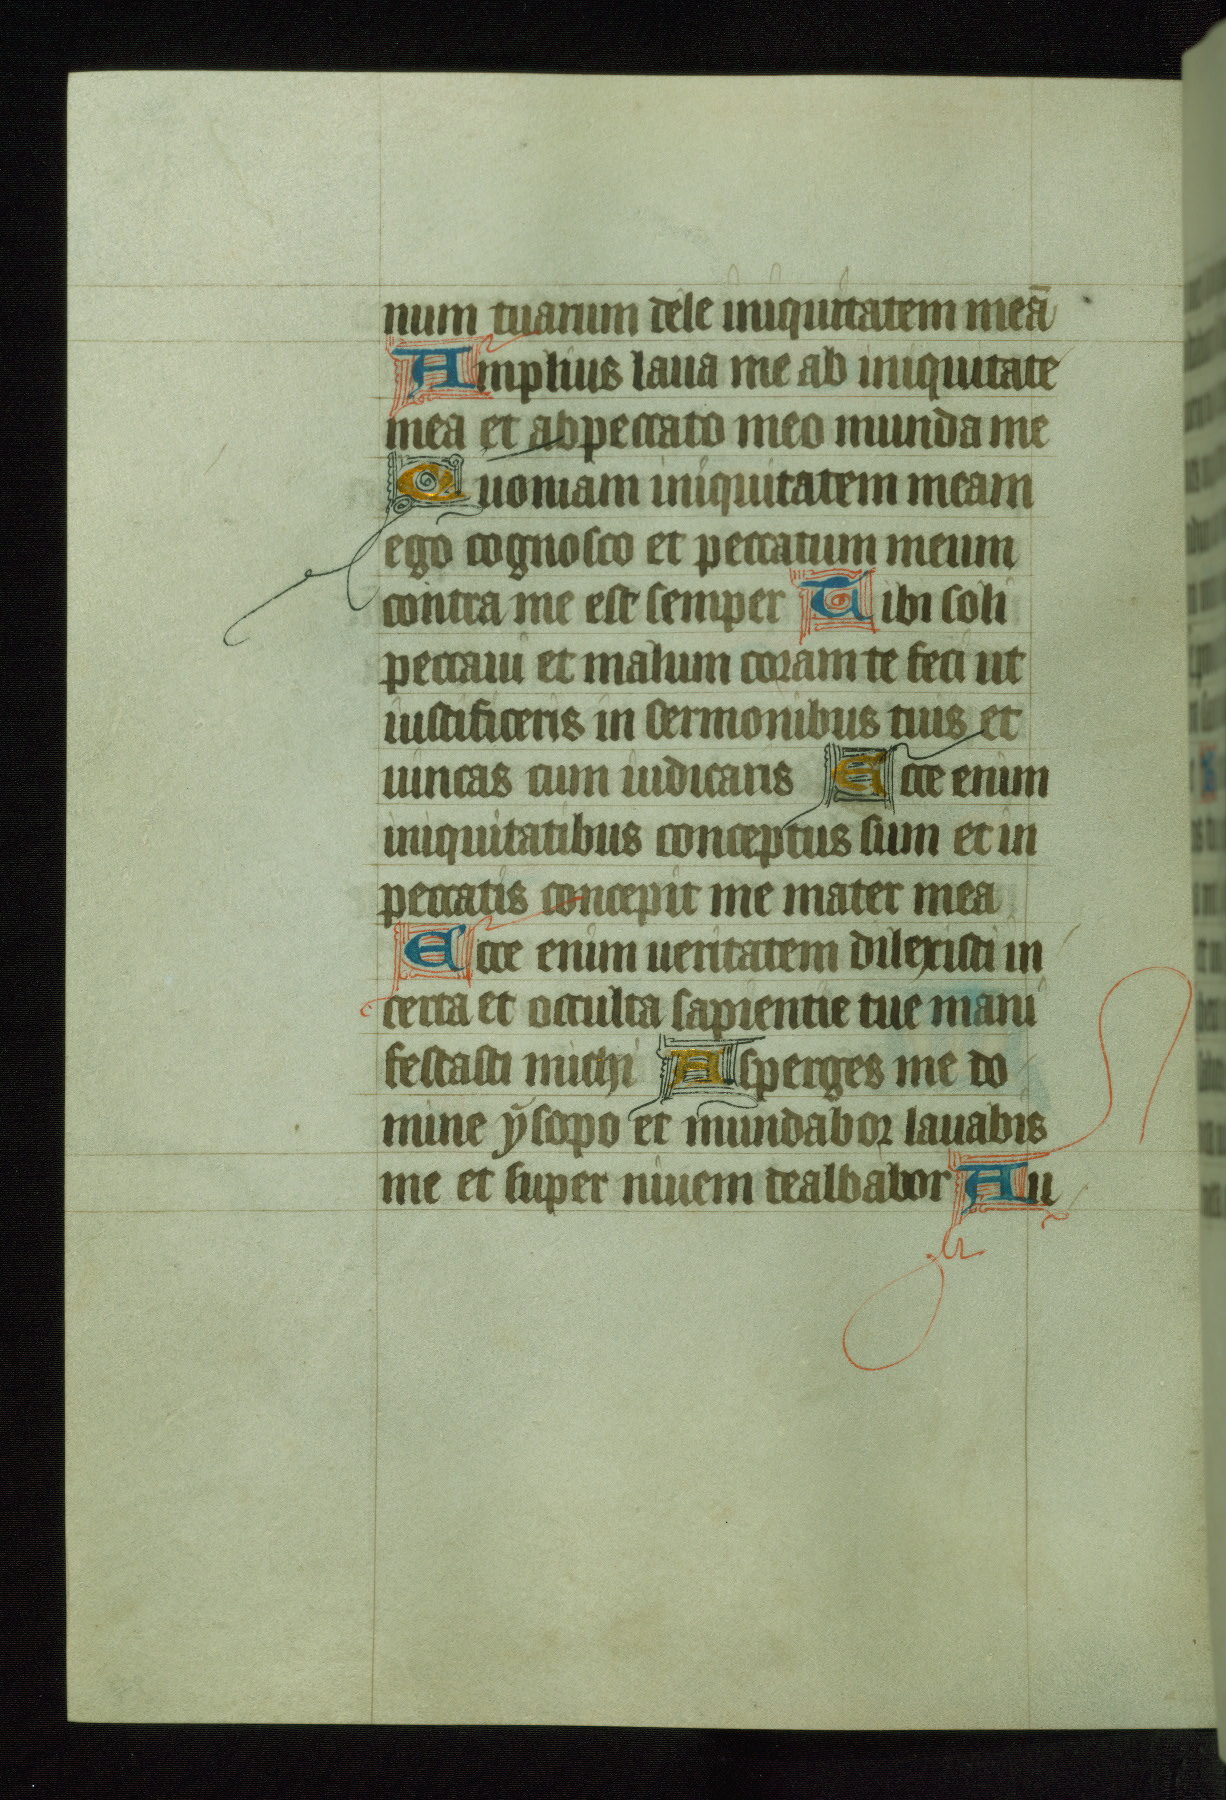 num tuarum dele iniquitatem meā
Amplius laua me ab iniquitate
mea et ab peccato meo munda me
Quoniam iniquitatem meam
ego cognosco et peccatum meum
contra me est semper Tibi soli
peccaui et malum coram te feci ut
iustificeris in sermonibus tuis et
uincas cum iudicaris Ecce enim
iniquitatibus conceptus sum et in
peccatis concepit me mater mea
Ecce enim ueritatem dilexisti in
certa et occulta sapientie tue mani
festasti michi Asperges me do
mine ysopo et mundabor lauabis
me et super niuem dealbabor Au